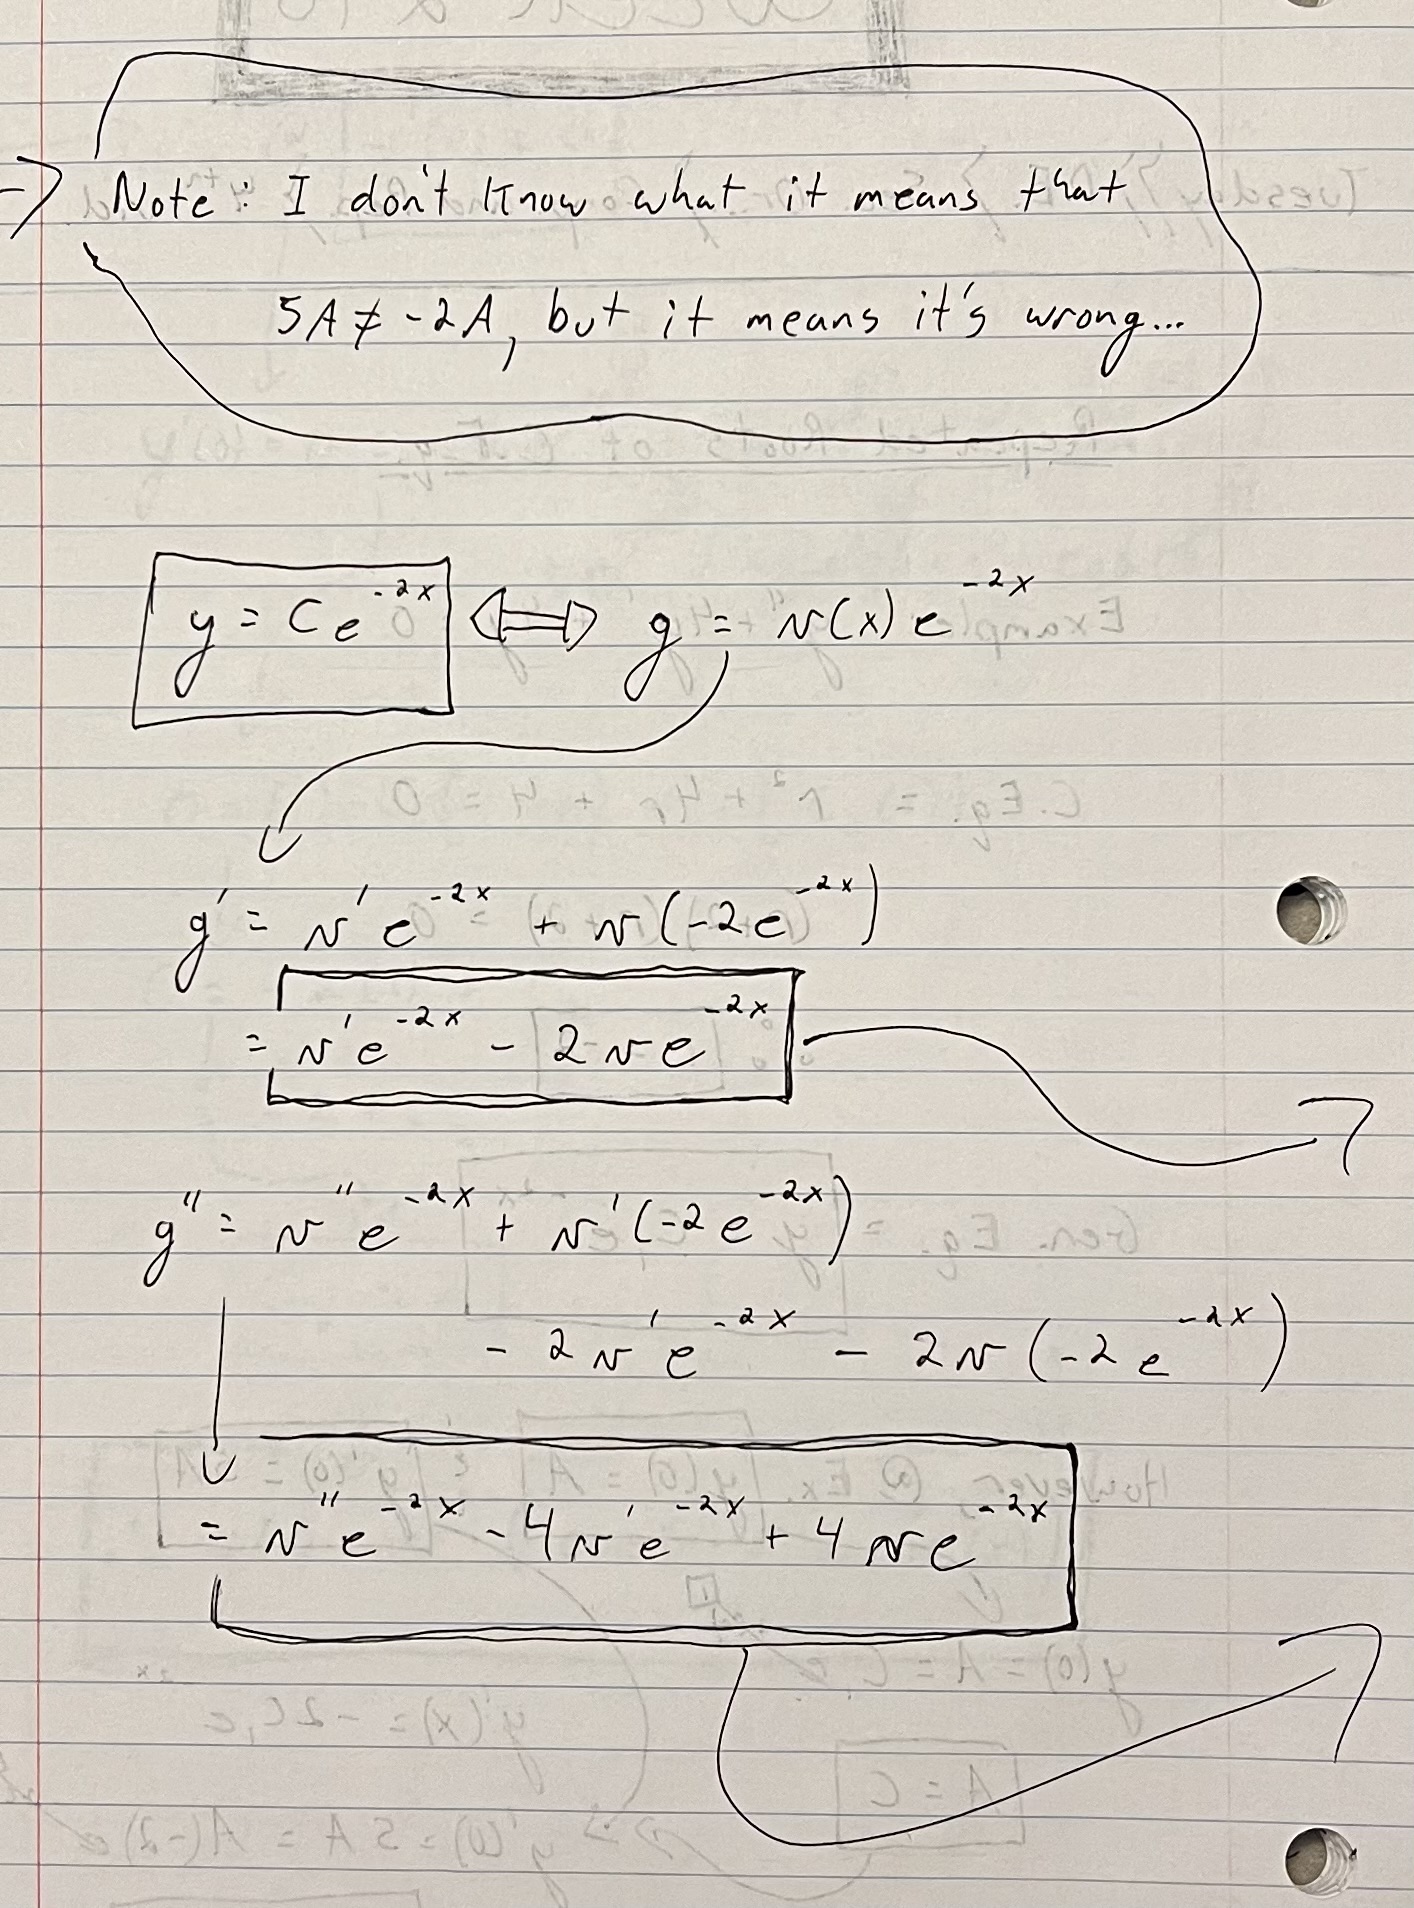 Note: I don't know what it means that
5A ≠ -2A, but it means it's wrong...
y = Ce^{-2x} ⟺ y = v(x)e^{-2x}
y' = v'e^{-2x} + v(-2e^{-2x})
= v'e^{-2x} - 2ve^{-2x}
y'' = v''e^{-2x} + v'(-2e^{-2x})
- 2v'e^{-2x} - 2v(-2e^{-2x})
= v''e^{-2x} - 4v'e^{-2x} + 4ve^{-2x}